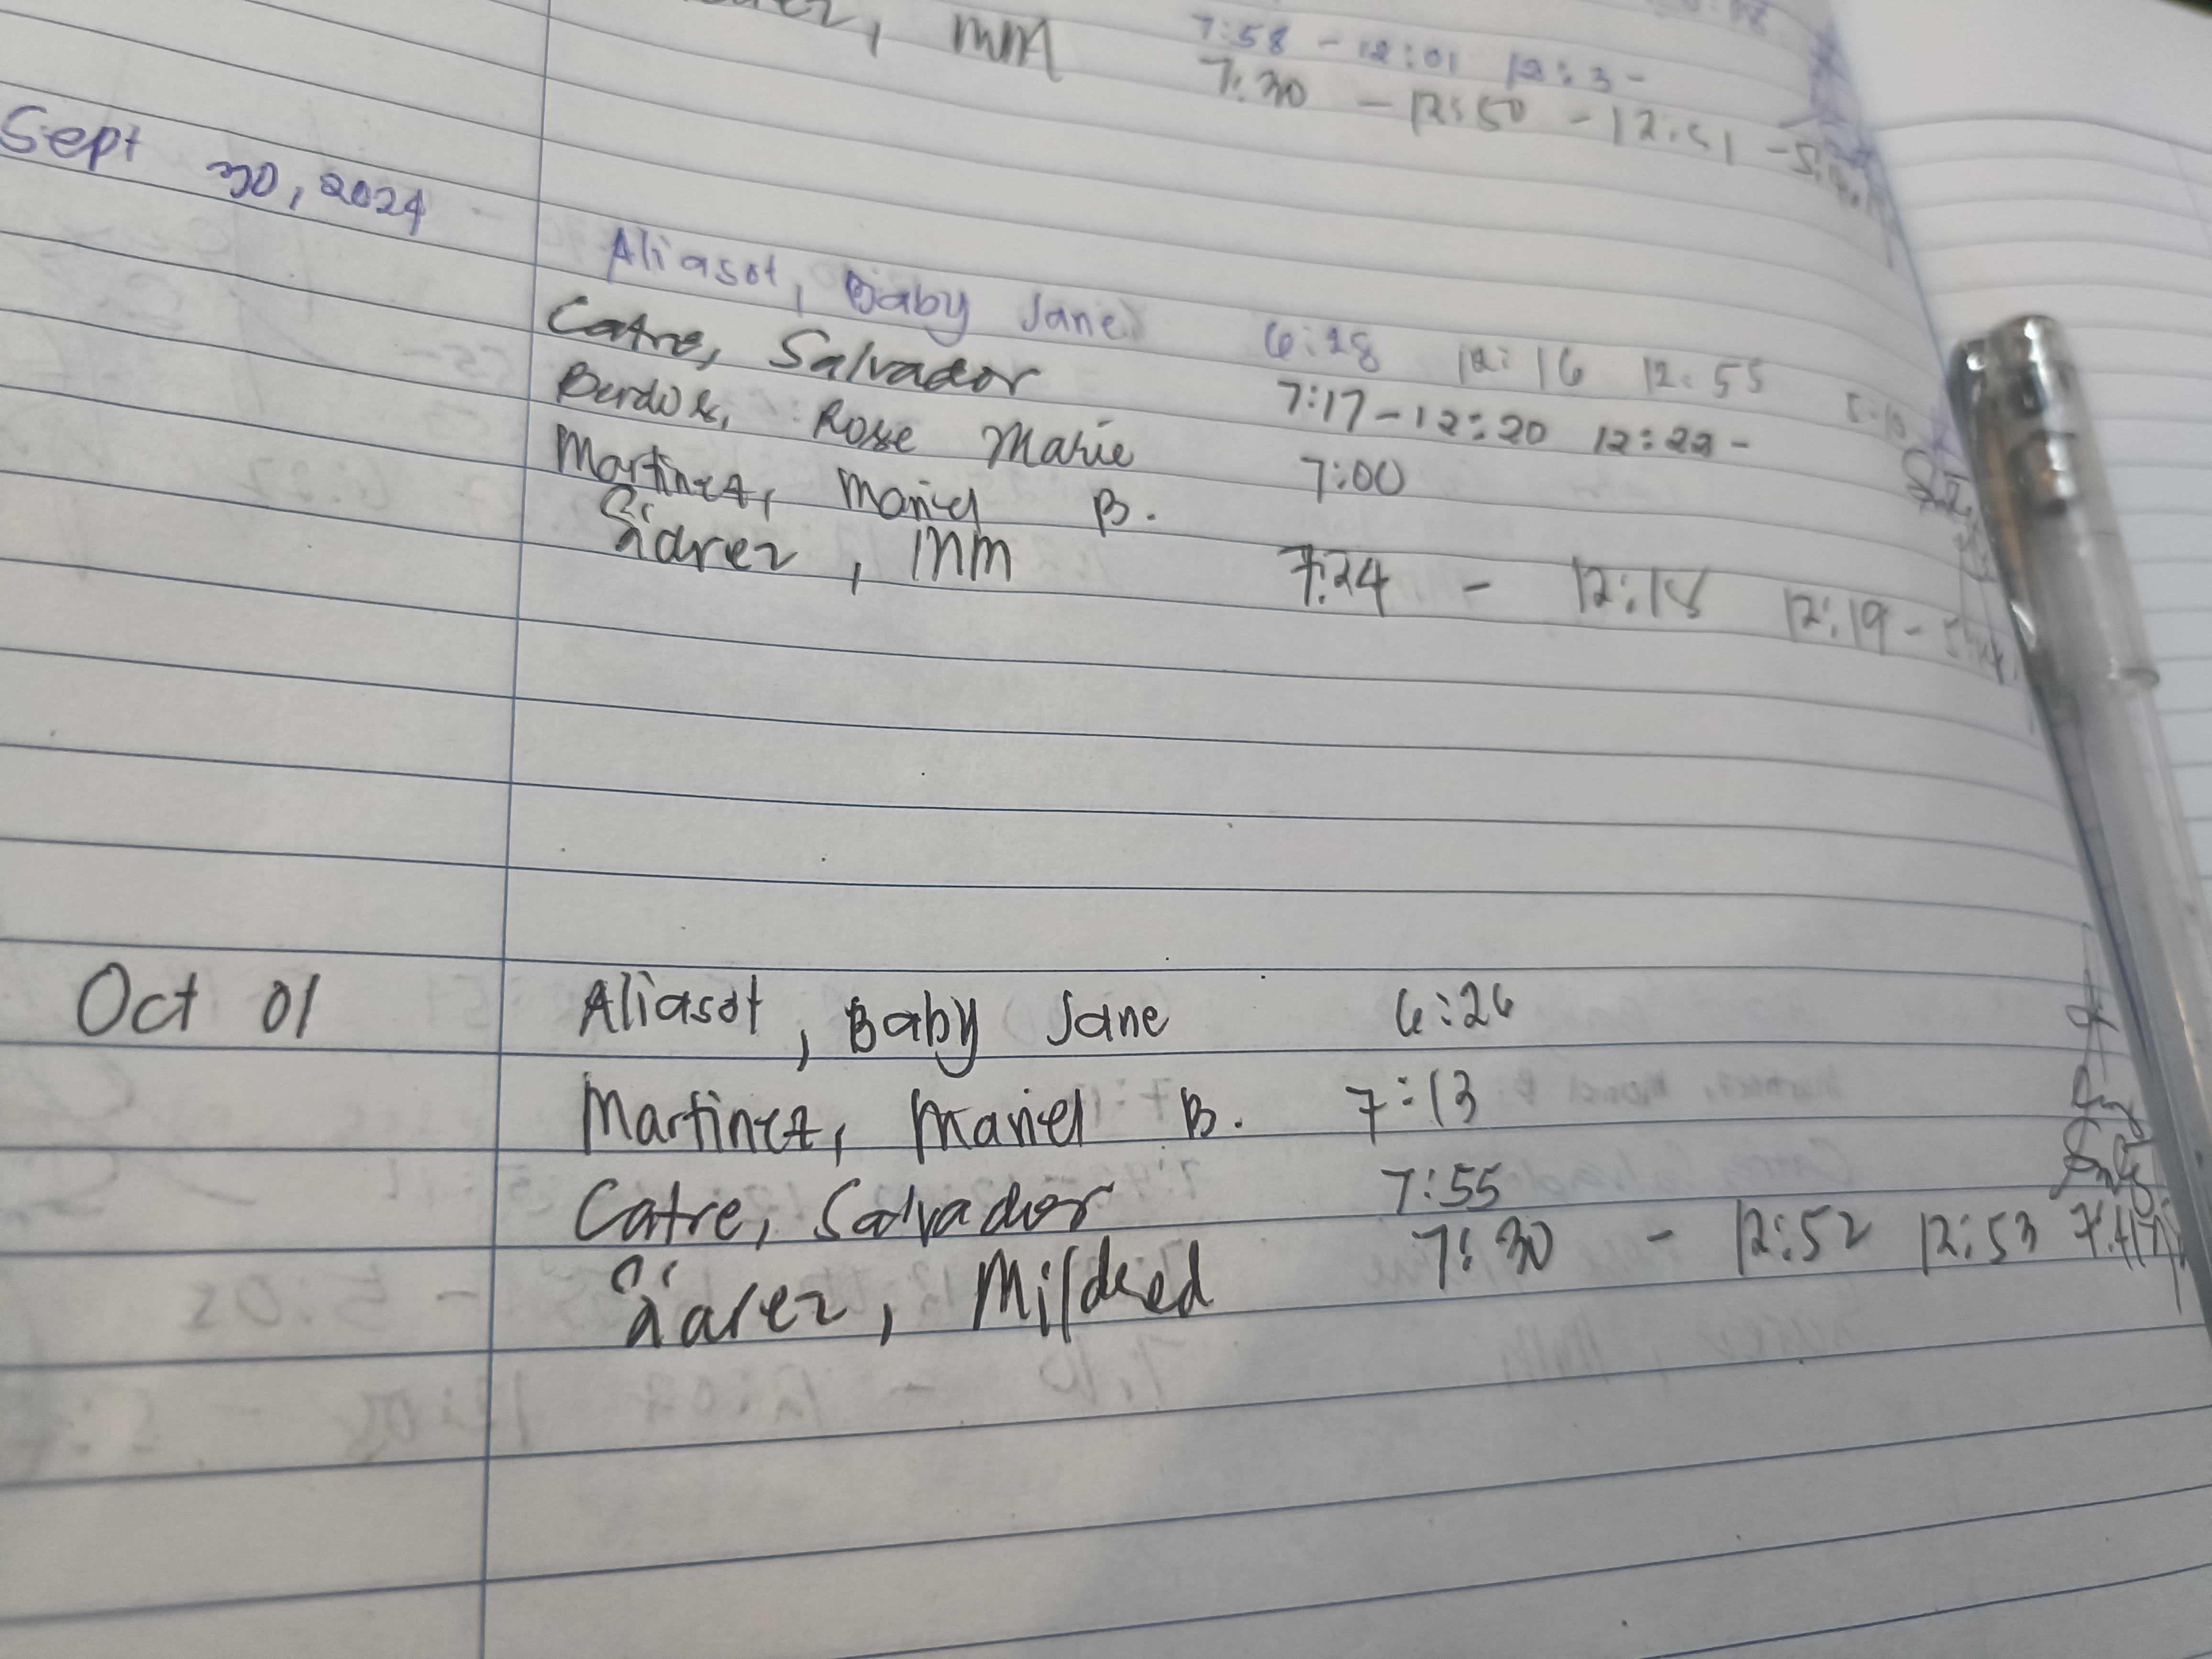 , MM 7:58 - 12:01 12:3-
7:30 - 12:50 - 12:51 -
Sept 30, 2024
Aliasot, Baby Jane 6:28 12:16 12:55 5:10
Catre, Salvador 7:17-12:20 12:22-
Rose Marie 7:00
Martinez, Mariel B.
Siarez, MM 7:24 - 12:18 12:19-
Oct 01 Aliasot, Baby Jane 6:26
Martinez, Mariel B. 7:13
Catre, Salvador 7:55
Siarez, Mildred 7:30 - 12:52 12:53